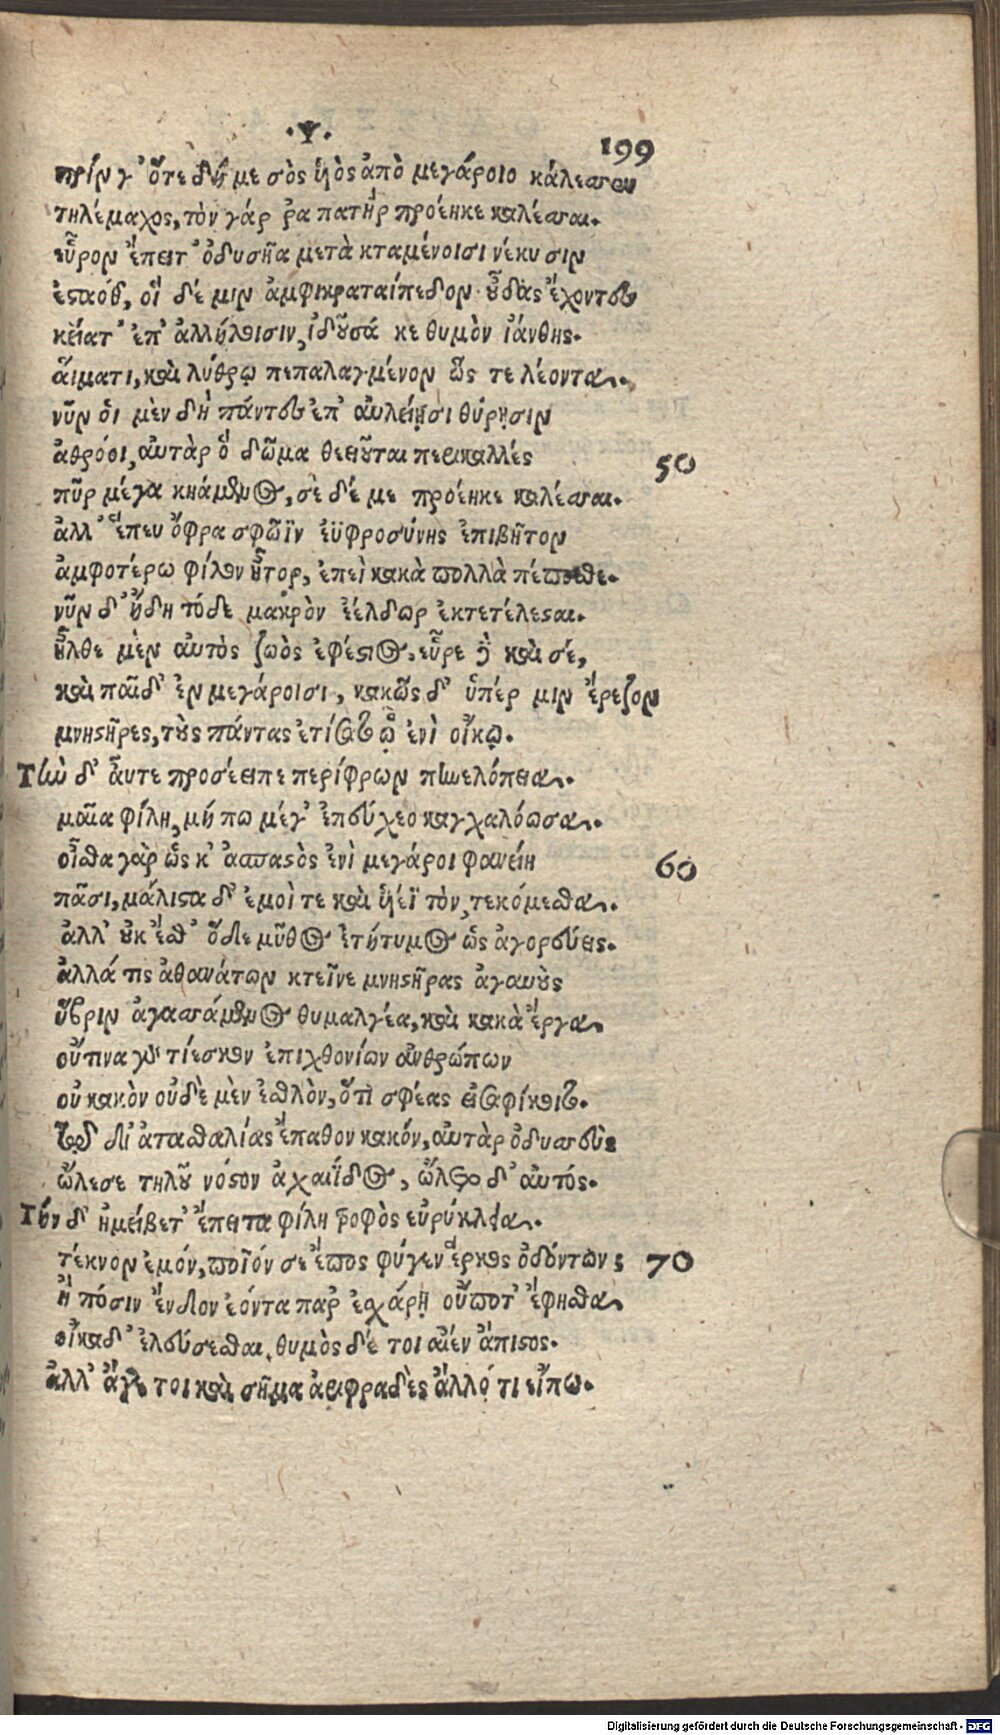 ·Ψ·
199
πρίν γ' ὅτε δή με σὸς ὑὸς ἀπὸ μεγάροιο κάλεσσεν
τηλέμαχος, τὸν γάρ ῥα πατὴρ προέηκε καλέσσαι.
εὗρον ἔπειτ' ὀδυσῆα μετὰ κταμένοισι νέκυσιν
ἑσταόθ', οἵ δέ μιν ἀμφικραταίπεδον οὖδας ἔχοντες
κείατ' ἐπ' ἀλλήλοισιν, ἰδοῦσά κε θυμὸν ἰάνθης.
αἵματι, καὶ λύθρῳ πεπαλαγμένον ὥς τε λέοντα.
νῦν δὸι μὲν δὴ πάντες ἐπ' αὐλείῃσι θύρῃσιν
ἀθρόοι, αὐτὰρ ὅ δῶμα θεειοῦται περικαλλές
50
πῦρ μέγα κηάμενος, σὲ δέ με προέηκε καλέσσαι.
ἀλλ' ἕπευ ὄφρα σφῶϊν ἐϋφροσύνης ἐπιβῆτον
ἀμφοτέρω φίλον ἦτορ, ἐπεὶ κακὰ πολλὰ πέποσθε.
νῦν δ' ἤδη τόδε μακρὸν ἐέλδωρ ἐκτετέλεσται.
ἦλθε μὲν αὐτὸς ζωὸς ἐφέστιος, εὗρε δὲ καὶ σέ,
καὶ παῖδ' ἐν μεγάροισι, κακῶς δ' ὑπέρ μιν ἔρεζον
μνηστῆρες, τοὺς πάντας ἐτίσατο ᾧ ἐνὶ οἴκῳ.
Τὴν δ' αὖτε προσέειπε περίφρων πηνελόπεια.
μαῖα φίλη, μή πω μέγ' ἐπεύχεο καγχαλόωσα.
οἶσθα γὰρ ὥς κ' ἀσπαστὸς ἐνὶ μεγάροισι φανείη
60
πᾶσι, μάλιστα δ' ἐμοί τε καὶ ὑιέϊ τὸν, τεκόμεσθα.
ἀλλ' οὐκ ἔσθ' ὅδε μῦθος ἐτήτυμος ὡς ἀγορεύεις.
ἀλλά τις ἀθανάτων κτεῖνε μνηστῆρας ἀγαυοὺς
ὕβριν ἀγασσάμενος θυμαλγέα, καὶ κακὰ ἔργα
οὔτινα γὰρ τίεσκον ἐπιχθονίων ἀνθρώπων
οὐ κακὸν οὐδὲ μὲν ἐσθλὸν, ὅτις σφέας εἰσαφίκοιτο.
τῷ δι' ἀτασθαλίας ἔπαθον κακόν, αὐτὰρ ὀδυσσεὺς
ὤλεσε τηλοῦ νόστον ἀχαιΐδος, ὤλετο δ' αὐτός.
Τὴν δ' ἠμείβετ' ἔπειτα φίλη τροφὸς εὐρύκλεια.
τέκνον ἐμόν, ποῖόν σε ἔπος φύγεν ἕρκος ὀδόντων;
70
ἣ πόσιν ἔνδον ἐόντα παρ' ἐσχάρῃ οὔποτ' ἔφησθα
οἴκαδ' ἐλεύσεσθαι, θυμὸς δέ τοι αἰὲν ἄπιστος.
ἀλλ' ἄγε τοι καὶ σῆμα ἀριφραδὲς ἄλλό τι εἴπω.
Digitalisierung gefördert durch die Deutsche Forschungsgemeinschaft - DFG